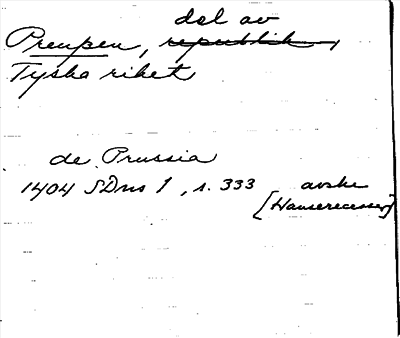 del av
Preuβen, republik,
Tyska riket
de Prussia
1404 SDns 1, s. 333 avskr
[Hanserecesser]